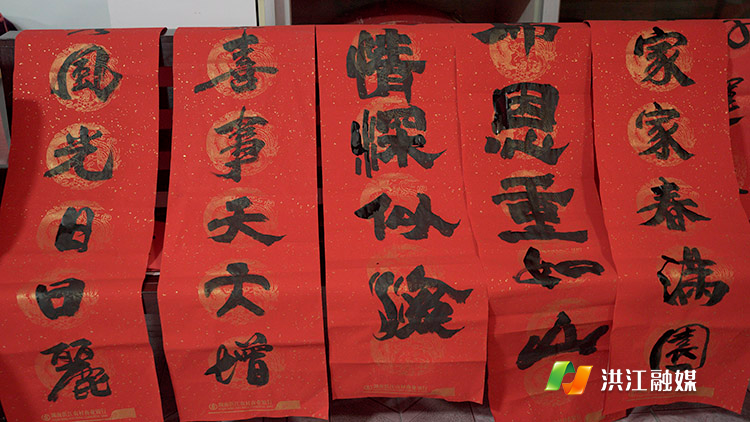 家家春满園
师恩重如山
情深似海
喜事天天增
風光日日麗
洪江融媒